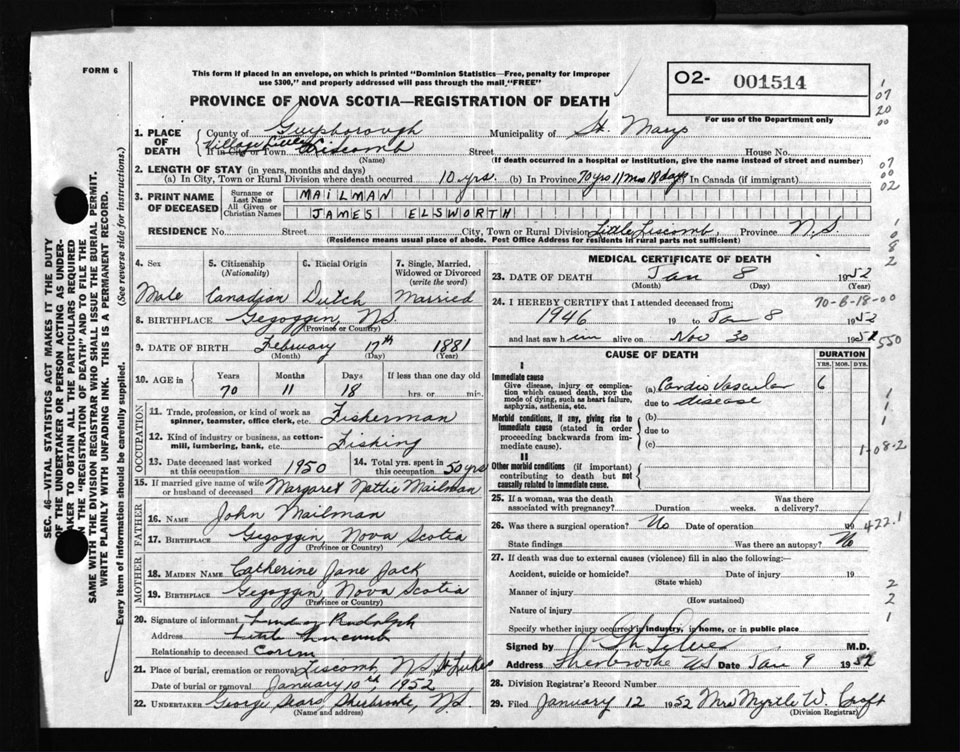 FORM 6
This form if placed in an envelope, on which is printed "Dominion Statistics—Free, penalty for improper use $300," and properly addressed will pass through the mail "FREE"
O2- 001514
For use of the Department only
PROVINCE OF NOVA SCOTIA—REGISTRATION OF DEATH
1. PLACE OF DEATH { County of Guysborough Municipality of St. Marys
Village Little
If in City or Town Liscomb Street House No.
(Name) (If death occurred in a hospital or institution, give the name instead of street and number)
2. LENGTH OF STAY (in years, months and days)
(a) In City, Town or Rural Division where death occurred 10 yrs. (b) In Province 70 yrs 11 mos 18 days In Canada (if immigrant)
3. PRINT NAME OF DECEASED { Surname or Last Name MAILMAN
All Given or Christian Names JAMES ELSWORTH
RESIDENCE No. Street City, Town or Rural Division Little Liscomb, Province N.S.
(Residence means usual place of abode. Post Office Address for residents in rural parts not sufficient)
4. Sex Male
5. Citizenship (Nationality) Canadian
6. Racial Origin Dutch
7. Single, Married, Widowed or Divorced (write the word) Married
8. BIRTHPLACE Gegoggin, N.S.
(Province or Country)
9. DATE OF BIRTH February 17th 1881
(Month) (Day) (Year)
10. AGE in Years 70 Months 11 Days 18 If less than one day old hrs. or min.
OCCUPATION
11. Trade, profession, or kind of work as spinner, teamster, office clerk, etc. Fisherman
12. Kind of industry or business, as cotton-mill, lumbering, bank, etc Fishing
13. Date deceased last worked at this occupation 1950
14. Total yrs. spent in this occupation 50 yrs
15. If married give name of wife or husband of deceased Margaret Nettie Mailman
FATHER
16. NAME John Mailman
17. BIRTHPLACE Gegoggin, Nova Scotia
(Province or Country)
MOTHER
18. MAIDEN NAME Catherine Jane Jack
19. BIRTHPLACE Gegoggin, Nova Scotia
(Province or Country)
20. Signature of informant Lindsay Rudolph
Address Little Liscomb
Relationship to deceased
21. Place of burial, cremation or removal Liscomb N.S. St. Lukes
Date of burial or removal January 10th, 1952
22. UNDERTAKER George Sears Sherbrooke, N.S.
(Name and address)
MEDICAL CERTIFICATE OF DEATH
23. DATE OF DEATH Jan 8 1952
(Month) (Day) (Year)
24. I HEREBY CERTIFY that I attended deceased from: 70-6-18-00
1946 19 to Jan 8 1952
and last saw him alive on Nov 30 1951
550
CAUSE OF DEATH DURATION
YRS. MOS. DYS.
I
Immediate cause
Give disease, injury or complication which caused death, not the mode of dying, such as heart failure, asphyxia, asthenia, etc.
(a) Cardio Vascular 6
due to disease
Morbid conditions, if any, giving rise to immediate cause (stated in order proceeding backwards from immediate cause).
(b)
due to
(c)
1-08-2
II
Other morbid conditions (if important) contributing to death but not causally related to immediate cause.
25. If a woman, was the death associated with pregnancy? Duration weeks. Was there a delivery?
26. Was there a surgical operation? No Date of operation 19
422.1
State findings Was there an autopsy? No
27. If death was due to external causes (violence) fill in also the following:—
Accident, suicide or homicide? Date of injury 19
(State which)
Manner of injury
(How sustained)
Nature of injury
Specify whether injury occurred in industry, in home, or in public place
Signed by M.D.
Address Sherbrooke NS Date Jan 9 1952
28. Division Registrar's Record Number
29. Filed January 12 1952 Mrs Myrtle W. Croft
(Division Registrar)
SEC. 46—VITAL STATISTICS ACT MAKES IT THE DUTY OF THE UNDERTAKER OR PERSON ACTING AS UNDERTAKER TO OBTAIN ALL THE PARTICULARS REQUIRED IN THE "REGISTRATION OF DEATH" AND TO FILE THE SAME WITH THE DIVISION REGISTRAR WHO SHALL ISSUE THE BURIAL PERMIT.
WRITE PLAINLY WITH UNFADING INK. THIS IS A PERMANENT RECORD.
Every item of information should be carefully supplied. (See reverse side for instructions.)
1
07
20
00
07
00
02
1
0
8
2
2
2
1